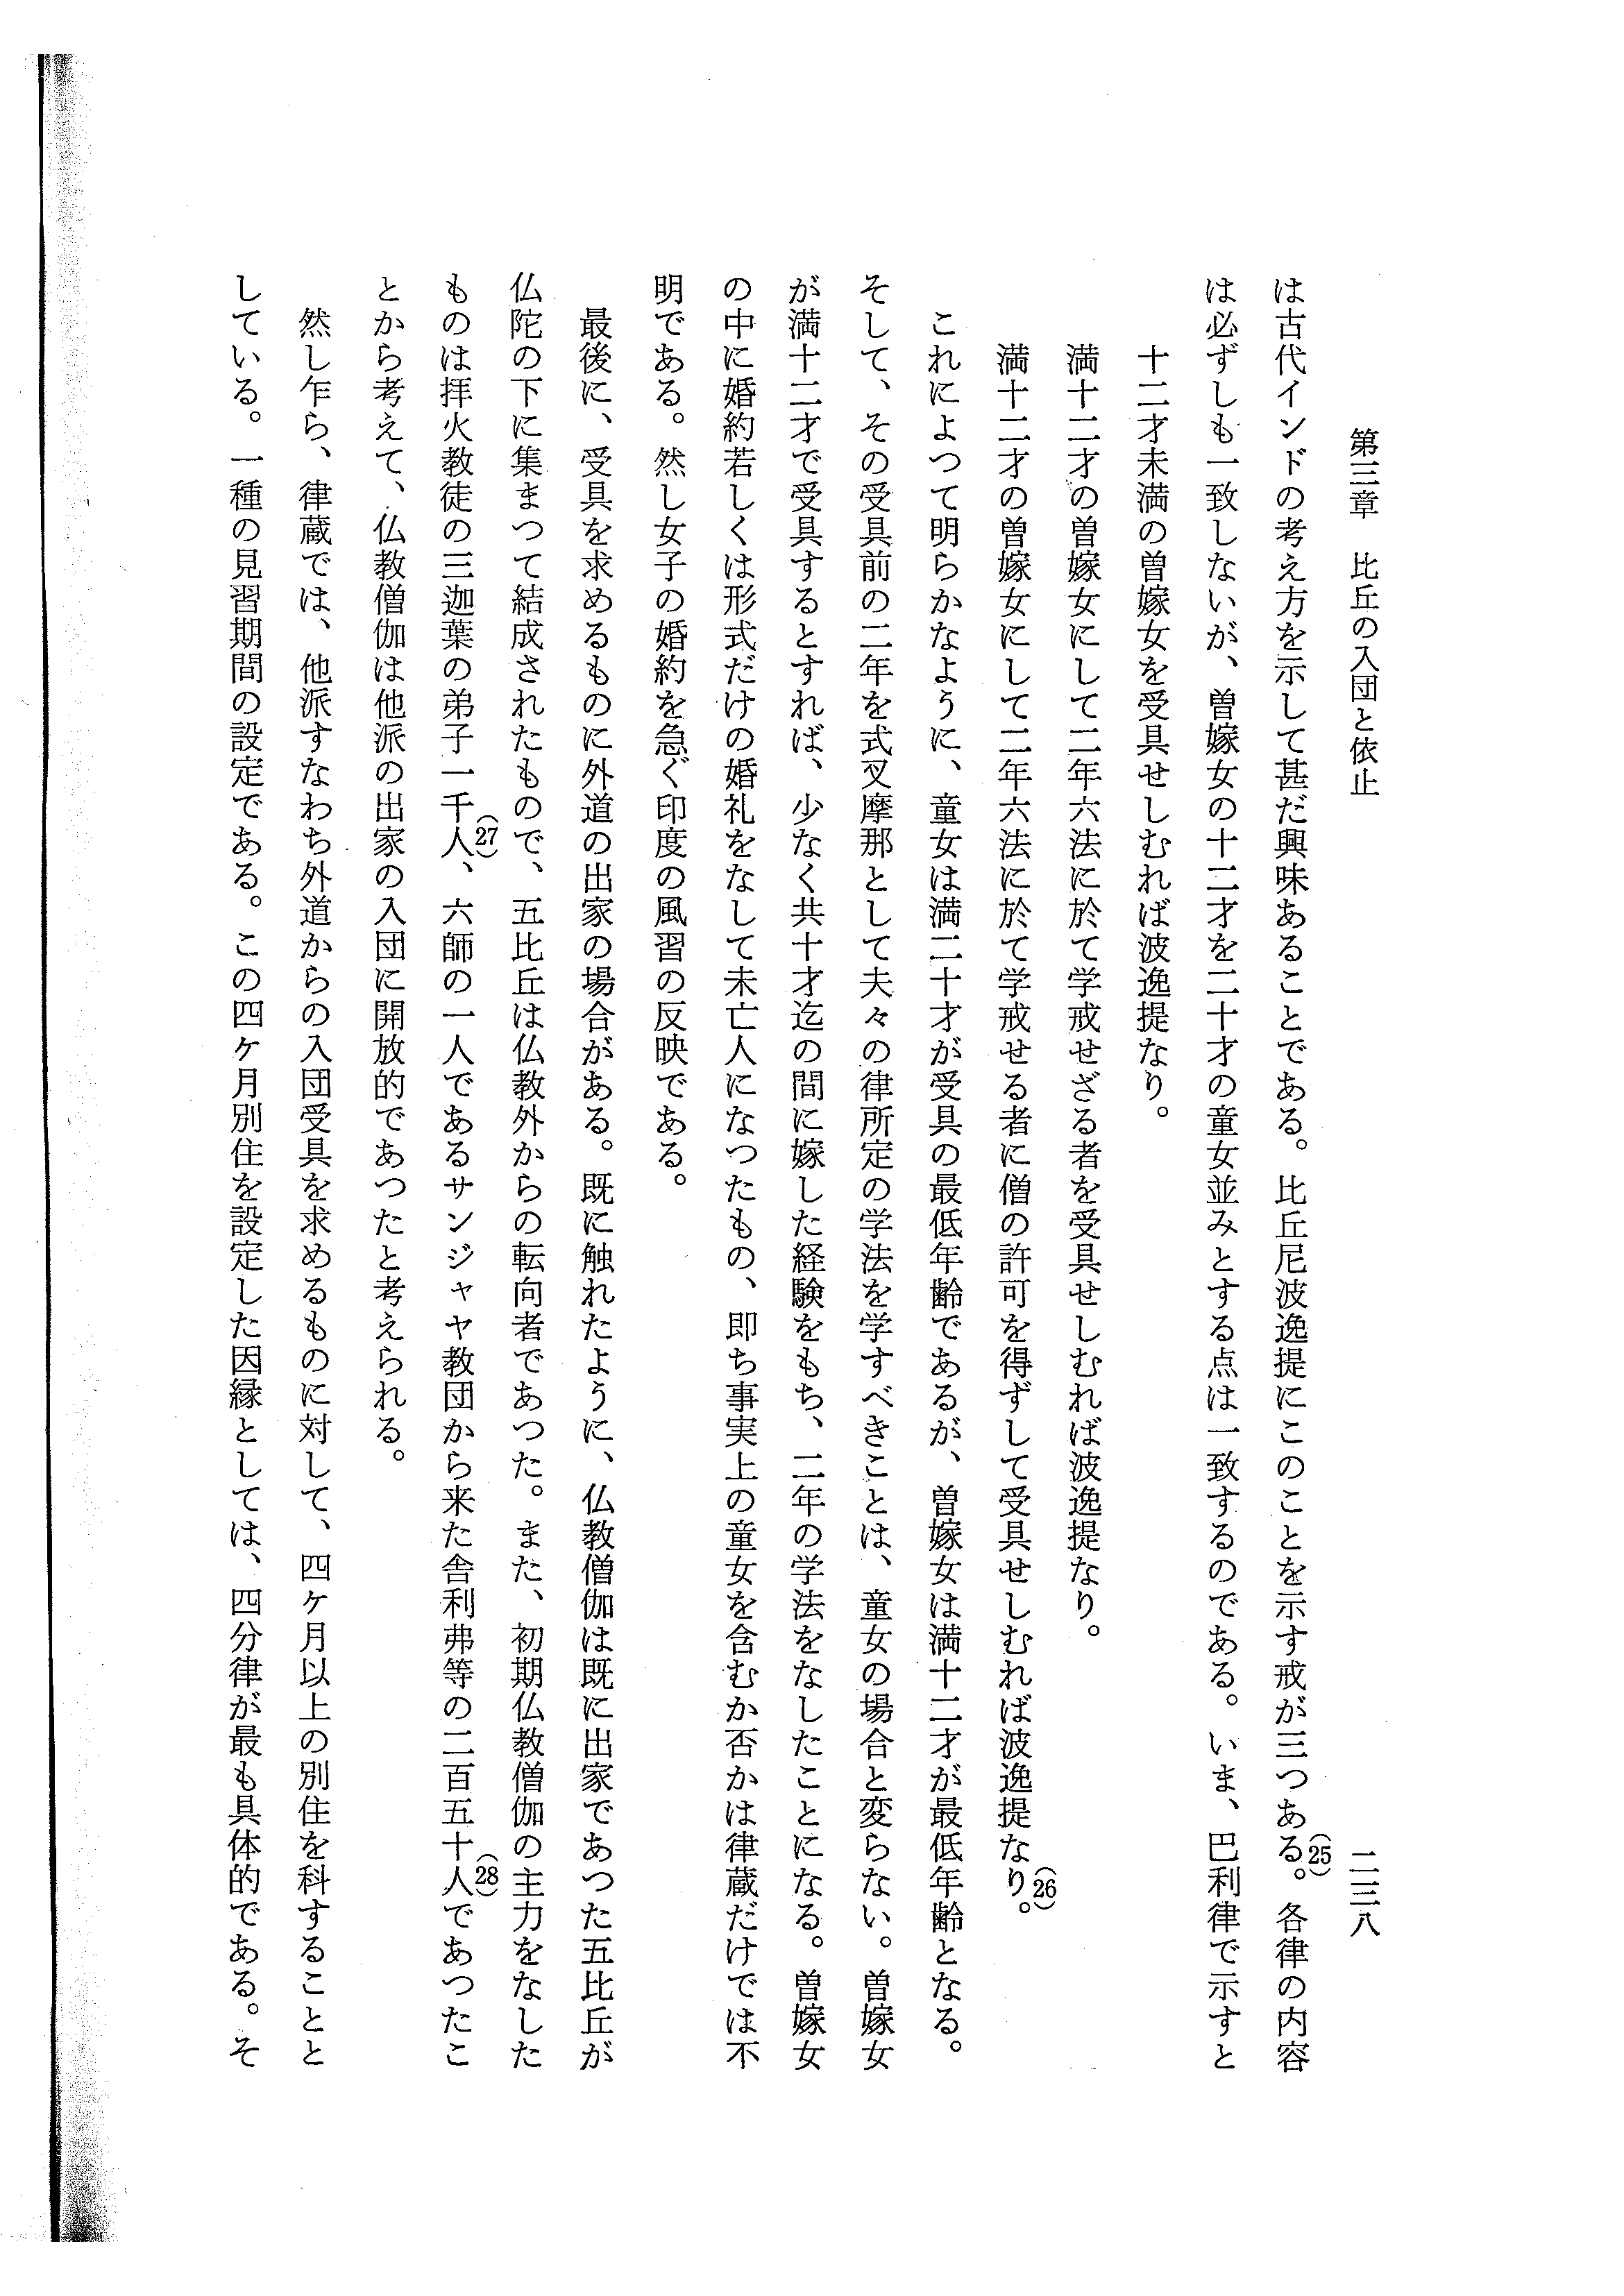 第三章　比丘の入団と依止
二三八
は古代インドの考え方を示して甚だ興味あることである。比丘尼波逸提にこのことを示す戒が三つある(25)。各律の内容
は必ずしも一致しないが、曽嫁女の十二才を二十才の童女並みとする点は一致するのである。いま、巴利律で示すと
十二才未満の曽嫁女を受具せしむれば波逸提なり。
満十二才の曽嫁女にして二年六法に於て学戒せざる者を受具せしむれば波逸提なり。
満十二才の曽嫁女にして二年六法に於て学戒せる者に僧の許可を得ずして受具せしむれば波逸提なり(26)。
これによつて明らかなように、童女は満二十才が受具の最低年齢であるが、曽嫁女は満十二才が最低年齢となる。
そして、その受具前の二年を式叉摩那として夫々の律所定の学法を学すべきことは、童女の場合と変らない。曽嫁女
が満十二才で受具するとすれば、少なく共十才迄の間に嫁した経験をもち、二年の学法をなしたことになる。曽嫁女
の中に婚約若しくは形式だけの婚礼をなして未亡人になつたもの、即ち事実上の童女を含むか否かは律蔵だけでは不
明である。然し女子の婚約を急ぐ印度の風習の反映である。
最後に、受具を求めるものに外道の出家の場合がある。既に触れたように、仏教僧伽は既に出家であつた五比丘が
仏陀の下に集まつて結成されたもので、五比丘は仏教外からの転向者であつた。また、初期仏教僧伽の主力をなした
ものは拝火教徒の三迦葉の弟子一千人(27)、六師の一人であるサンジャヤ教団から来た舎利弗等の二百五十人(28)であつたこ
とから考えて、仏教僧伽は他派の出家の入団に開放的であつたと考えられる。
然し乍ら、律蔵では、他派すなわち外道からの入団受具を求めるものに対して、四ケ月以上の別住を科することと
している。一種の見習期間の設定である。この四ケ月別住を設定した因縁としては、四分律が最も具体的である。そ